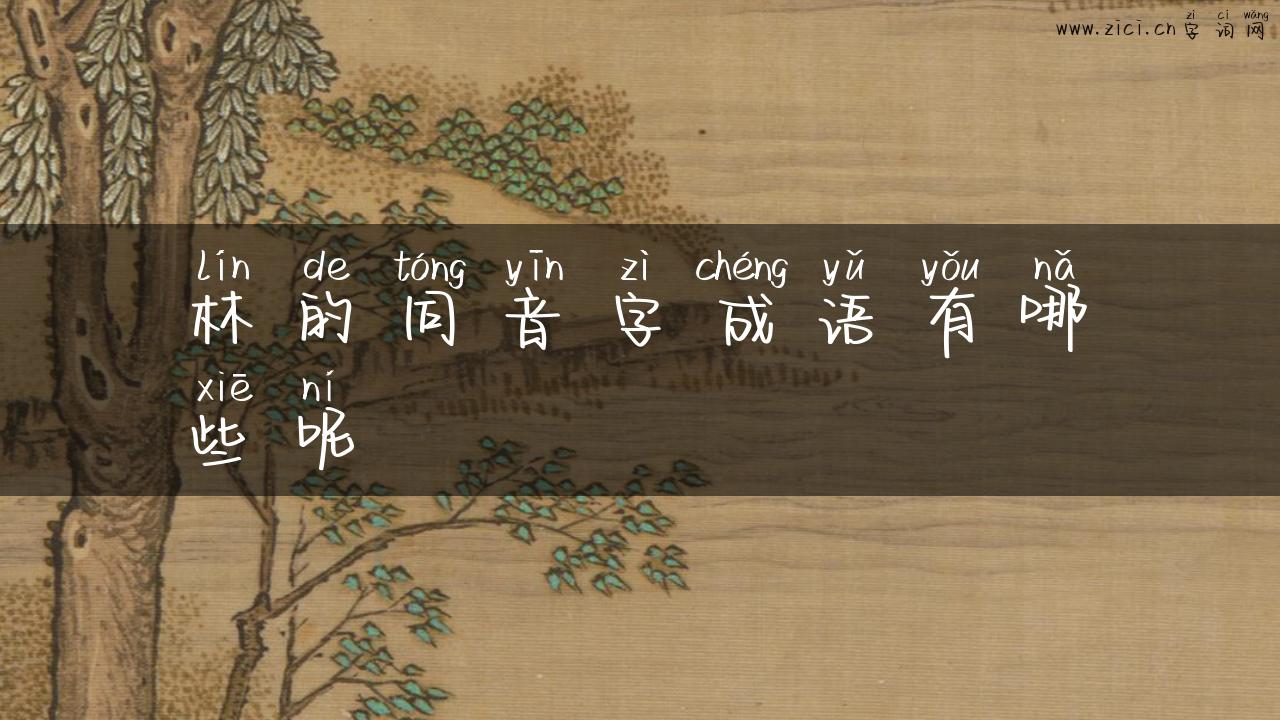 zì cí wǎng
www.zici.cn 字词网
lín de tóng yīn zì chéng yǔ yǒu nǎ
林的同音字成语有哪
xiē ní
些呢